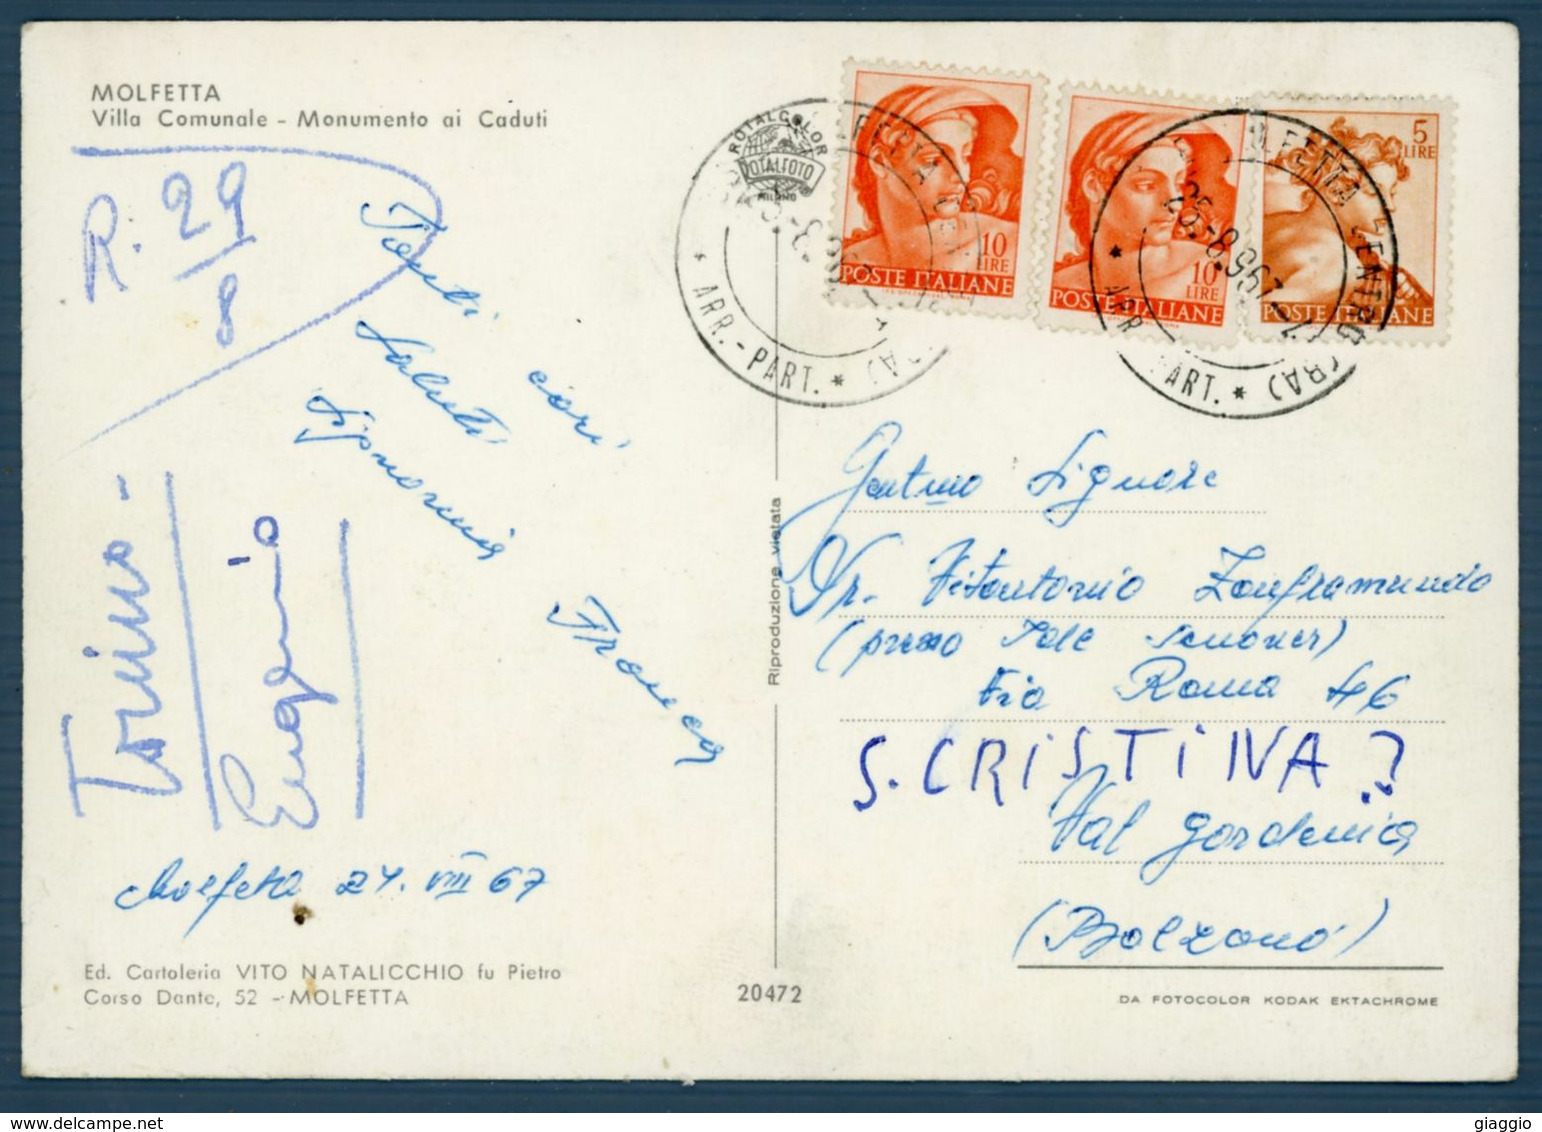 MOLFETTA
Villa Comunale - Monumento ai Caduti
R. 29/8
Tanti cari
saluti
Signorina
Franca
Torino -
Eugenio
Molfetta 24. VIII 67
Ed. Cartoleria VITO NATALICCHIO fu Pietro
Corso Dante, 52 - MOLFETTA
Riproduzione vietata
20472
ROTALCOLOR
ROTALFOTO
MILANO
10 LIRE
POSTE ITALIANE
10 LIRE
POSTE ITALIANE
5 LIRE
POSTE ITALIANE
MOLFETTA CENTRO (BA)
* ARR.-PART. *
MOLFETTA CENTRO (BA)
* ARR.-PART. *
Gentmo Signore
Sr. Vitantonio Zanframundo
(presso Sale Senoner)
Via Roma 46
S. CRISTINA?
Val gardenia
(Bolzano)
DA FOTOCOLOR KODAK EKTACHROME
giaggio